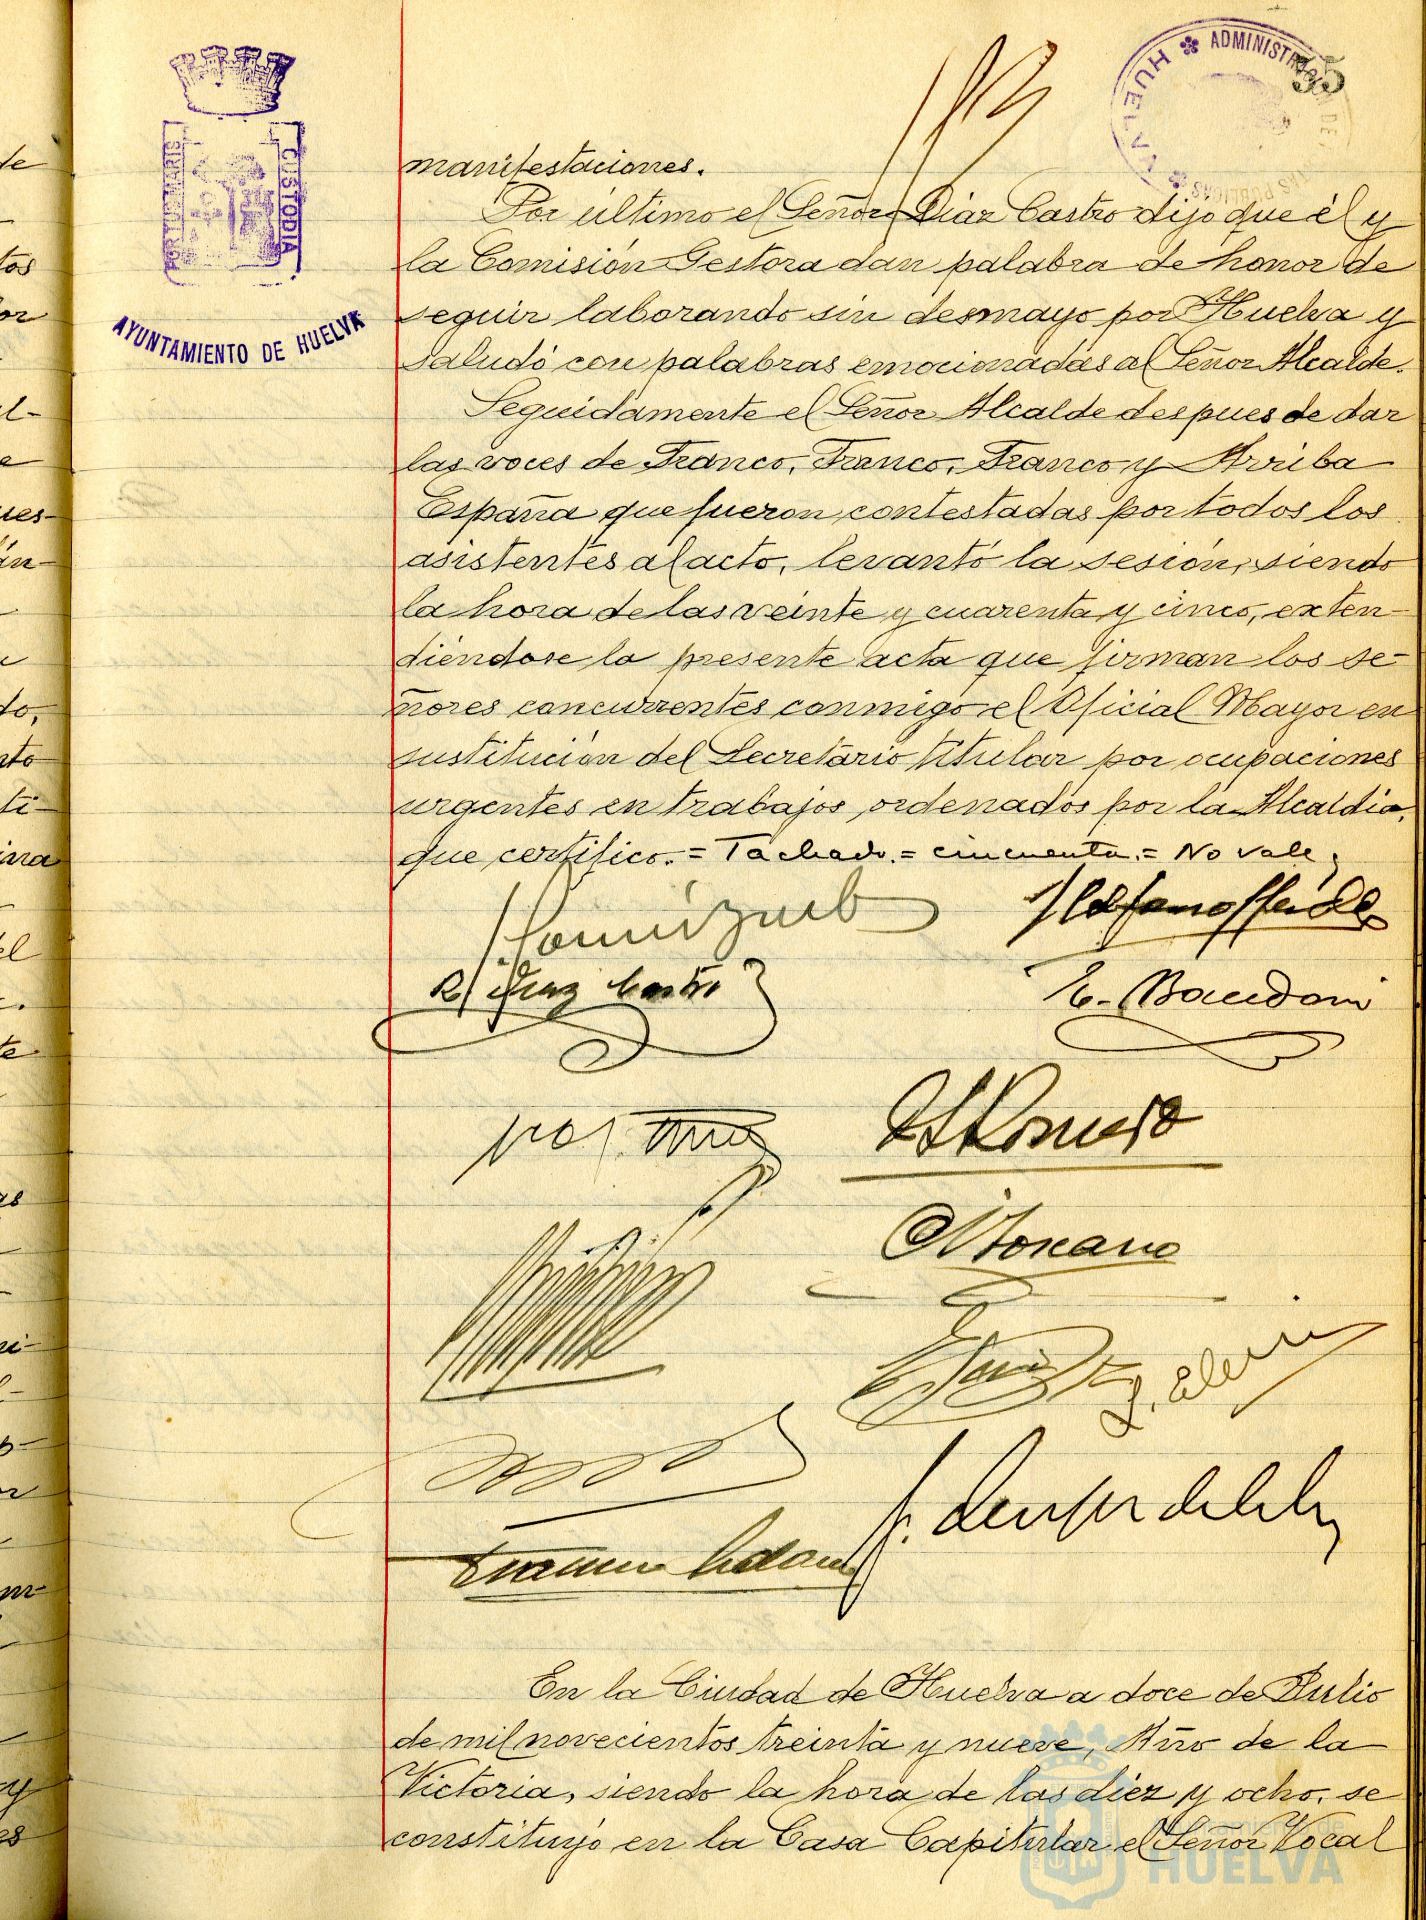 ADMINISTRACIÓN DE
HUELVA
35
PORTUS MARIS
CUSTODIA
AYUNTAMIENTO DE HUELVA
manifestaciones.
Por último el Señor Diaz Castro dijo que él y
la Comisión Gestora dan palabra de honor de
seguir laborando sin desmayo por Huelva y
saludó con palabras emocionadas al Señor Alcalde.
Seguidamente el Señor Alcalde despues de dar
las voces de Franco, Franco, Franco y Arriba
España que fueron contestadas por todos los
asistentes al acto, levantó la sesión, siendo
la hora de las veinte y cuarenta y cinco, exten-
diéndose la presente acta que firman los se-
ñores concurrentes conmigo el Oficial Mayor en
sustitución del Secretario titular por ocupaciones
urgentes en trabajos ordenados por la Alcaldia,
que certifico.= Tachado.= cincuenta.= No vale.
R. Diaz Castro
E. Baudoin
Romero
En la Ciudad de Huelva a doce de Julio
de mil novecientos treinta y nueve, Año de la
Victoria, siendo la hora de las diez y ocho, se
constituyó en la Casa Capitular el Señor Vocal
Ayuntamiento de
HUELVA